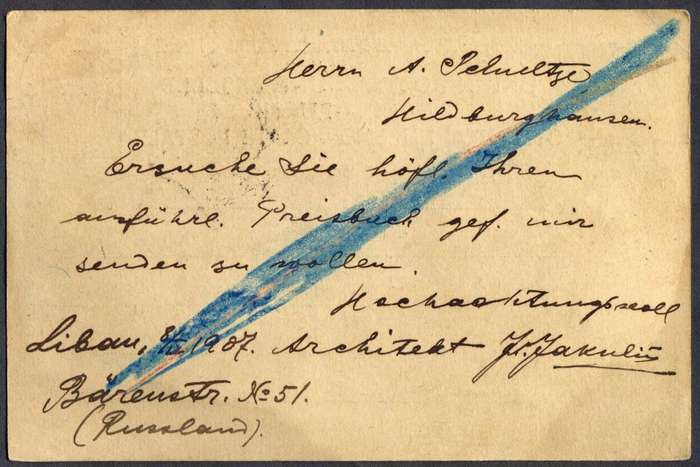 Herrn A. Schultze
Hildburghausen.
Ersuche Sie höfl. Ihren
ausführl. Preisbuch gef. mir
senden zu wollen.
Hochachtungsvoll
Libau, 8/II 1907. Architekt
Bärenstr. No 51.
(Russland).